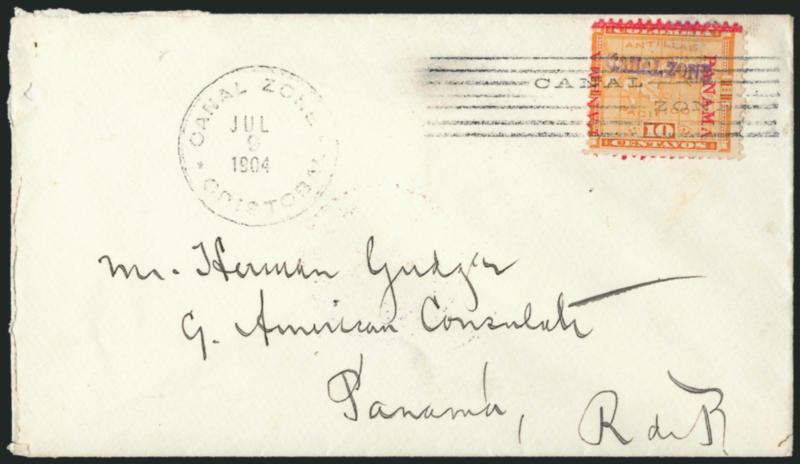 CANAL ZONE
JUL
9
1904
CRISTOBAL
COLOMBIA
ANTILLAS
CANAL ZONE
PANAMA
PANAMA
10
CENTAVOS
CANAL
ZONE
Mr. Herman Gudger
G. American Consulate
Panamá,
R de P